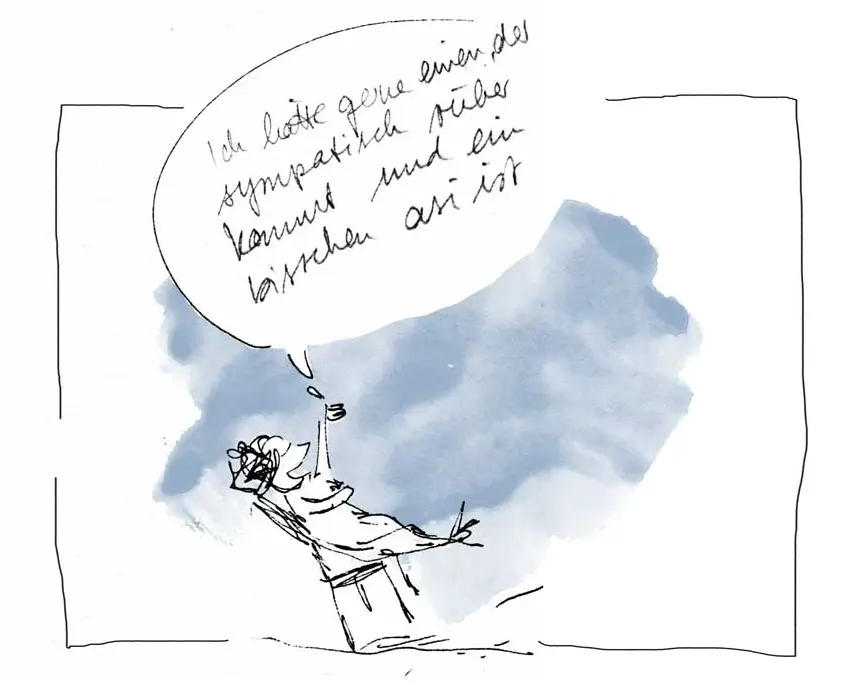 Ich hätte gerne einen, der
sympatisch rüber
kommt und ein
bisschen asi ist